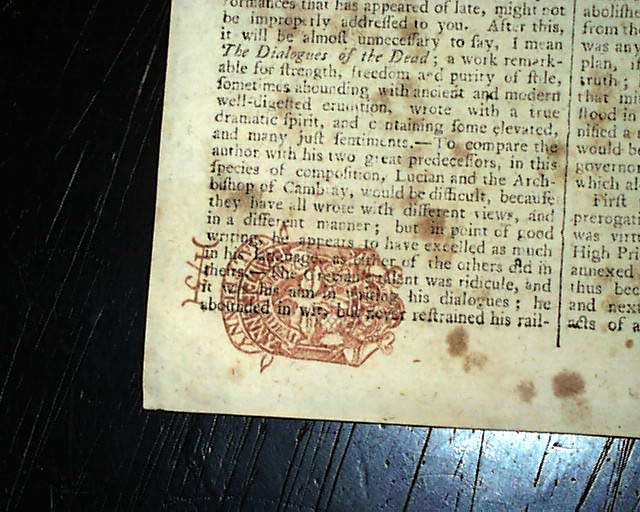 formances that has appeared of late, might not
be improperly addreſſed to you. After this,
it will be almoſt unneceſſary to ſay, I mean
The Dialogues of the Dead; a work remark-
able for ſtrength, freedom and purity of ſtile,
ſometimes abounding with ancient and modern
well-digeſted erudition, wrote with a true
dramatic ſpirit, and containing ſome elevated,
and many juſt ſentiments.—To compare the
author with his two great predeceſſors, in this
ſpecies of compoſition, Lucian and the Arch-
biſhop of Cambray, would be difficult, becauſe
they have all wrote with different views, and
in a different manner; but in point of good
writing appears to have excelled as much
in his language, as either of the others did in
theirs. The talent was ridicule, and
it was his aim in his dialogues; he
abounded in wit, but never reſtrained his rail-
aboliſhe
from the
was any
plan, if
truth;
that mi
ſtood in
niſied a
would be
governor
which al
Firſt
prerogat
was virtu
High Pri
annexed
thus bec
and next
acts of a